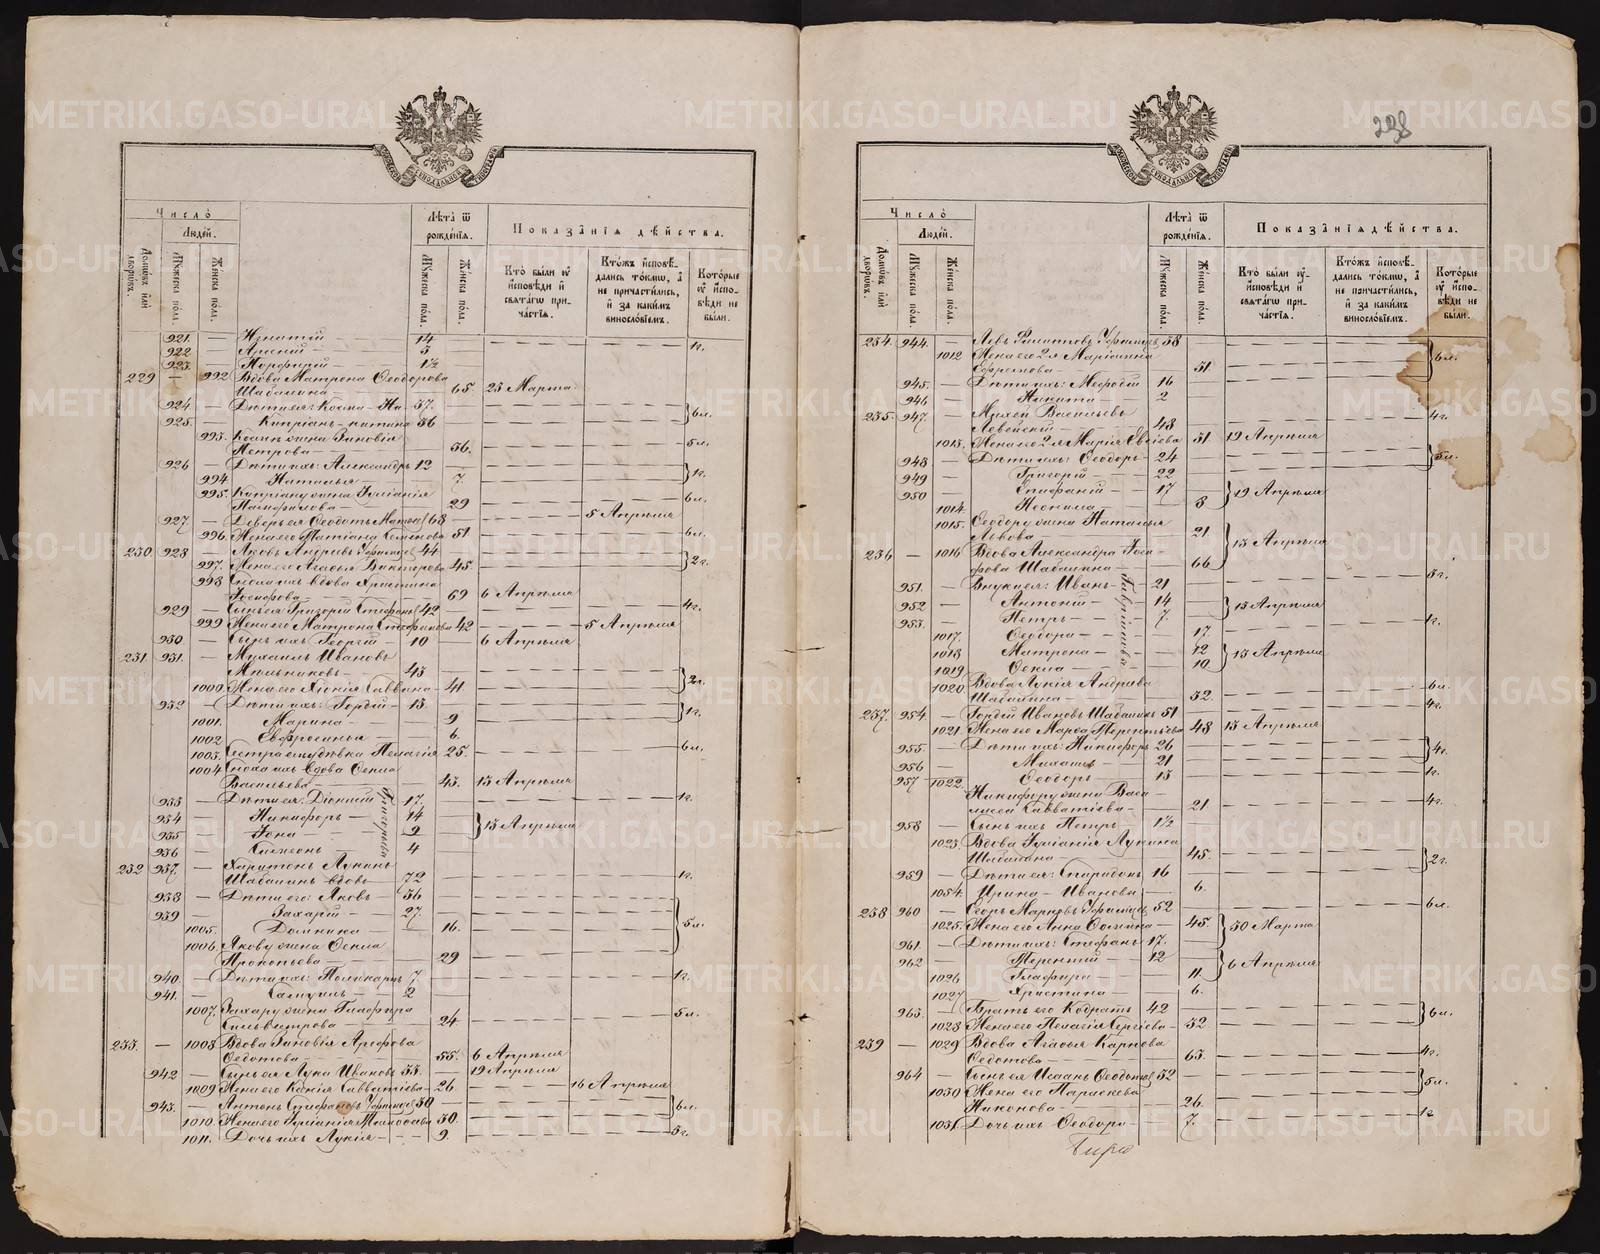 238
Число̀
Людей.
Домѡвъ илѝ дворѡвъ.
Мꙋжеска пола.
Женска пола.
Лѣта ѿ рожденїѧ.
Мꙋжеска пола.
Женска пола.
Показанїѧ дѣйства.
Кто были ᲂу исповѣди и свѧтагѡ причастїѧ.
Ктожъ исповѣдались токмѡ, а не причастились, и за какимъ винословїемъ.
Которые ᲂу исповѣди не были.
921. — Игнатій — 14
922 — Арсеній — 5
923. — Порфирій — 1½ 1г.
229 — 992 Вдова Матрона Ѳеодорова
Шабалина — 65 25 Марта
924. — Дѣти ея: Косма 37.
925. — Кипріанъ 36 6л.
993. Космы жена Зиновія
Петрова — 36. 5л.
926 — Дѣти ихъ: Александръ 12
994 Наталья — 7. 1г.
995. Кипріану жена Іуліанія
Памфилова — 29 6л.
927. — Деверь ея Ѳеодотъ 68 5 Апрѣля
996. Жена его Татіана Семенова 51 6л.
230. 928 — Яковъ Андреевъ Уфимцевъ 44
997. Жена его Агафья Викторова 45. 2г.
998 вдова Христина
Іосифова — 69 6 Апрѣля
929 — Сынъ ея Григорій Стефановъ 42 4г.
999 Жена его Матрона Стефанова 42 5 Апрѣля
930 — Сынъ ихъ Георгій — 10 6 Апрѣля
231. 931. — Михаилъ Ивановъ
Мыльниковъ — 43
1000. Жена его Хіонія Саввина — 41. 2г.
932 — Дѣти ихъ: Гордій — 13.
1001. Марина — 9 1г.
1002 Евфросинья — 6.
1003. Сестра его дѣвка Пелагія 25. 6л.
1004 Сноха ихъ вдова Ѳекла
Васильева — 43. 13 Апрѣля
933 — Дѣти ея: Діонисій 17. 1г.
934 — Никифоръ — 14
935 — Іона — 9 13 Апрѣля
936 — Симеонъ — 4
232 937. — Харитонъ Лукинъ
Шабалинъ вдовъ — 72 1г.
938 — Дѣти его: Яковъ — 36
939 — Захарій — 27.
1005. Домника — 16. 5л.
1006. Якову жена Ѳекла
Прокопьева — 29
940. — Дѣти ихъ: Поликарпъ 7 1г.
941. — Самуилъ — 2
1007. Захару жена Глафира
Сильвестрова — 24 5л.
233. — 1008. Вдова Зиновія Арефова
Ѳедотова — 55. 6 Апрѣля
942 — Сынъ ея Лука Ивановъ 33. 19 Апрѣля
1009 Жена его Ксенія Савватіева — 26. 16 Апрѣля
943. — Антонъ Стефановъ Уфимцевъ 30
1010. Жена его Іуліанія Тимофеева 30. 6л.
1011. Дочь ихъ Лукія — 9. 3г.
Число̀
Людей.
Домѡвъ илѝ дворѡвъ.
Мꙋжеска пола.
Женска пола.
Лѣта ѿ рожденїѧ.
Мꙋжеска пола.
Женска пола.
Показанїѧ дѣйства.
Кто были ᲂу исповѣди и свѧтагѡ причастїѧ.
Ктожъ исповѣдались токмѡ, а не причастились, и за какимъ винословїемъ.
Которые ᲂу исповѣди не были.
234. 944. — Левъ Филипповъ Уфимцевъ 58
1012 Жена его 2я Маріанна
Ефремова — 51 6л.
945. — Дѣти ихъ: Меѳодій 16
946 Никита — 2
235. 947. — Михей Васильевъ 4г.
48
1013. Жена его 2я Марія Евсіева 51 19 Апрѣля
948 — Дѣти ихъ: Ѳеодоръ — 24 3л.
949 — Григорій — 22
950 — Епифаній — 17 19 Апрѣля
1014. Неонила — 8
1015. Ѳеодору жена Наталья
Львова — 21. 13 Апрѣля
236 — 1016 Вдова Александра
Шабалина — 66
951. — Внуки ея: Иванъ — 21 3г.
952 — Антоній — 14 13 Апрѣля
953. — Петръ — 7.
1017. Ѳеодора — 17. 1г.
1018 Матрона — 12 13 Апрѣля
1019 Ѳекла — 10
1020. Вдова Лукія Андреева
Шабалина — 52. 6л.
237. 954. — Гордій Ивановъ Шабалинъ 51 4г.
1021 Жена его Марѳа Терентьева 48 13 Апрѣля
955. — Дѣти ихъ: Никифоръ 26
956 — Михаилъ — 21 4г.
957 1022. Ѳеодоръ — 13 1г.
Никифору жена Васи
лисса Савватіева — 21. 4г.
958 — Сынъ ихъ Петръ — 1½
1023. Вдова Іуліанія Лукина
Шабалина — 45. 2г.
959 — Дѣти ея: Спиридонъ 16
1054. Ирина — Иванова — 6.
238 960 — Егоръ Марковъ Уфимцевъ 52 6л.
1025. Жена его Анна 45. 30 Марта
961. — Дѣти ихъ: Стефанъ 17.
962 — Терентій — 12 6 Апрѣля
1026 Глафира — 11.
1027 Христина — 6.
963. — Братъ его Кодратъ 42
1028 Жена его Пелагія Сергіева — 32 6л.
239 — 1029 Вдова Агафья Карпова
Ѳедотова — 63. 4г.
964 — Сынъ ея Исаакъ Ѳеодотовъ 32
1030 Жена его Параскева 5л.
Никонова — 26.
1031. Дочь ихъ Ѳеодора — 7. 1г
METRIKI.GASO-URAL.RU